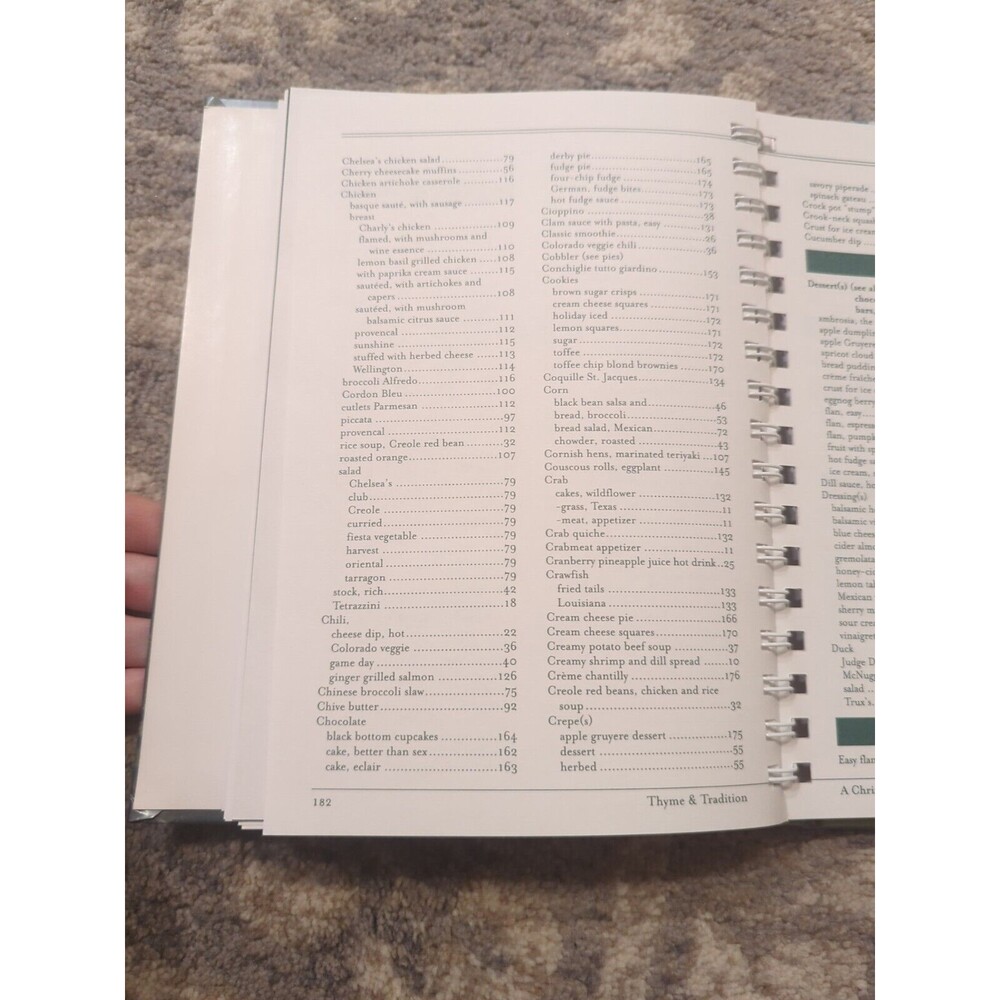 Chelsea's chicken salad..................79
Cherry cheesecake muffins ..............56
Chicken artichoke casserole .............116
Chicken
basque sauté, with sausage ............117
breast
Charly's chicken ....................109
flamed, with mushrooms and
wine essence .....................110
lemon basil grilled chicken ......108
with paprika cream sauce .........115
sautéed, with artichokes and
capers ..............................108
sautéed, with mushroom
balsamic citrus sauce ..........111
provencal ..............................112
sunshine ...............................115
stuffed with herbed cheese ......113
Wellington............................114
broccoli Alfredo........................116
Cordon Bleu ...........................100
cutlets Parmesan ......................112
piccata .....................................97
provencal ................................112
rice soup, Creole red bean ...........32
roasted orange..........................107
salad
Chelsea's ..............................79
club......................................79
Creole ..................................79
curried..................................79
fiesta vegetable .......................79
harvest .................................79
oriental .................................79
tarragon ................................79
stock, rich..................................42
Tetrazzini ..................................18
Chili,
cheese dip, hot............................22
Colorado veggie .........................36
game day ...................................40
ginger grilled salmon .................126
Chinese broccoli slaw.....................75
Chive butter..................................92
Chocolate
black bottom cupcakes ................164
cake, better than sex....................162
cake, eclair ................................163
derby pie..................................165
fudge pie..................................165
four-chip fudge .........................174
German, fudge bites...................173
hot fudge sauce .........................173
Cioppino .....................................38
Clam sauce with pasta, easy ...........131
Classic smoothie............................26
Colorado veggie chili......................36
Cobbler (see pies)
Conchiglie tutto giardino ...............153
Cookies
brown sugar crisps .....................171
cream cheese squares ..................171
holiday iced ..............................172
lemon squares............................171
sugar .......................................172
toffee .......................................172
toffee chip blond brownies ..........170
Coquille St. Jacques.......................134
Corn
black bean salsa and.....................46
bread, broccoli............................53
bread salad, Mexican....................72
chowder, roasted .........................43
Cornish hens, marinated teriyaki ...107
Couscous rolls, eggplant ...............145
Crab
cakes, wildflower .......................132
-grass, Texas ..............................11
-meat, appetizer .........................11
Crab quiche.................................132
Crabmeat appetizer .......................11
Cranberry pineapple juice hot drink..25
Crawfish
fried tails ..................................133
Louisiana ..................................133
Cream cheese pie ..........................166
Cream cheese squares.....................170
Creamy potato beef soup .................37
Creamy shrimp and dill spread .......10
Crème chantilly ...........................176
Creole red beans, chicken and rice
soup ..........................................32
Crepe(s)
apple gruyere dessert ...................175
dessert .......................................55
herbed .......................................55
182
Thyme & Tradition
savory piperade..
spinach gateau ..
Crock pot "stump"
Crook-neck squash
Crust for ice cream
Cucumber dip ....
Dessert(s) (see al
choc
bars,
ambrosia, the
apple dumplin
apple Gruyere
apricot cloud
bread puddin
crème fraîche
crust for ice
eggnog berry
flan, easy....
flan, espress
flan, pumpk
fruit with sp
hot fudge sa
ice cream,
Dill sauce, he
Dressing(s)
balsamic h
balsamic v
blue chees
cider almo
gremolata
honey-ci
lemon ta
Mexican
sherry m
sour crea
vinaigret
Duck
Judge D
McNugg
salad ..
Trux's..
Easy flan
A Chri